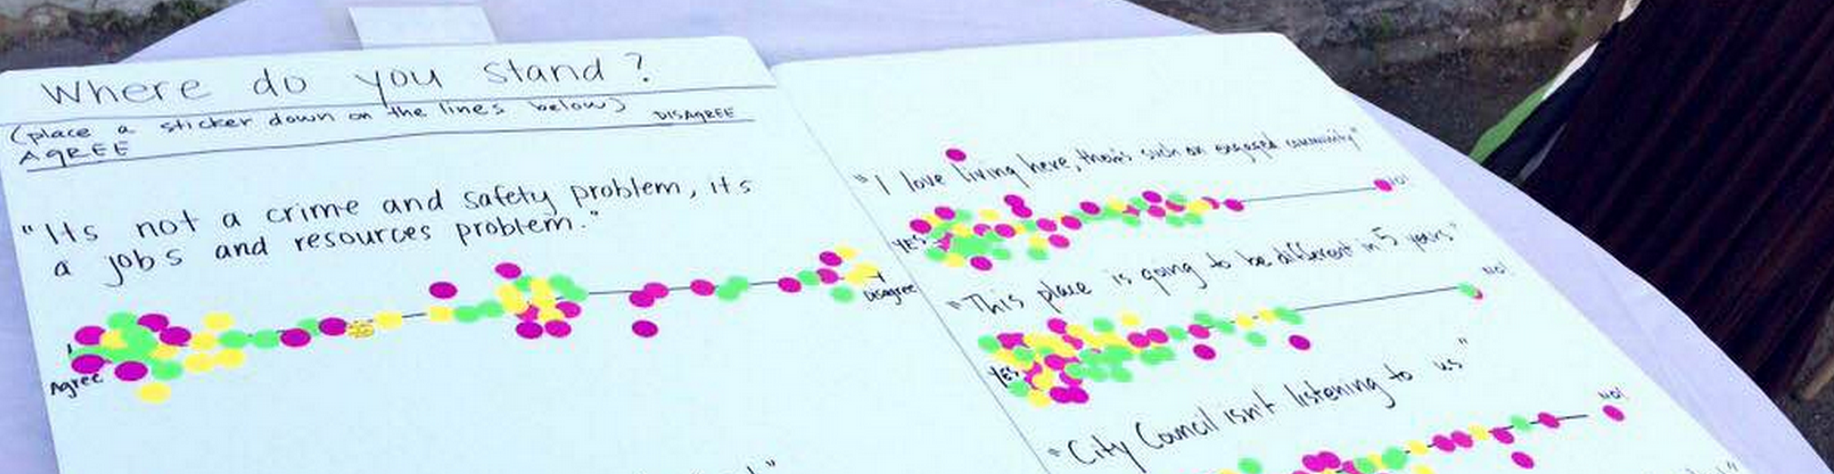 Where do you stand?
(place a sticker down on the lines below)
AGREE DISAGREE
"Its not a crime and safety problem, its
a jobs and resources problem."
Agree Disagree
"I love living here, there's such an engaged community"
YES NO!
"This place is going to be different in 5 years"
YES NO!
"City Council isn't listening to us"
NO!